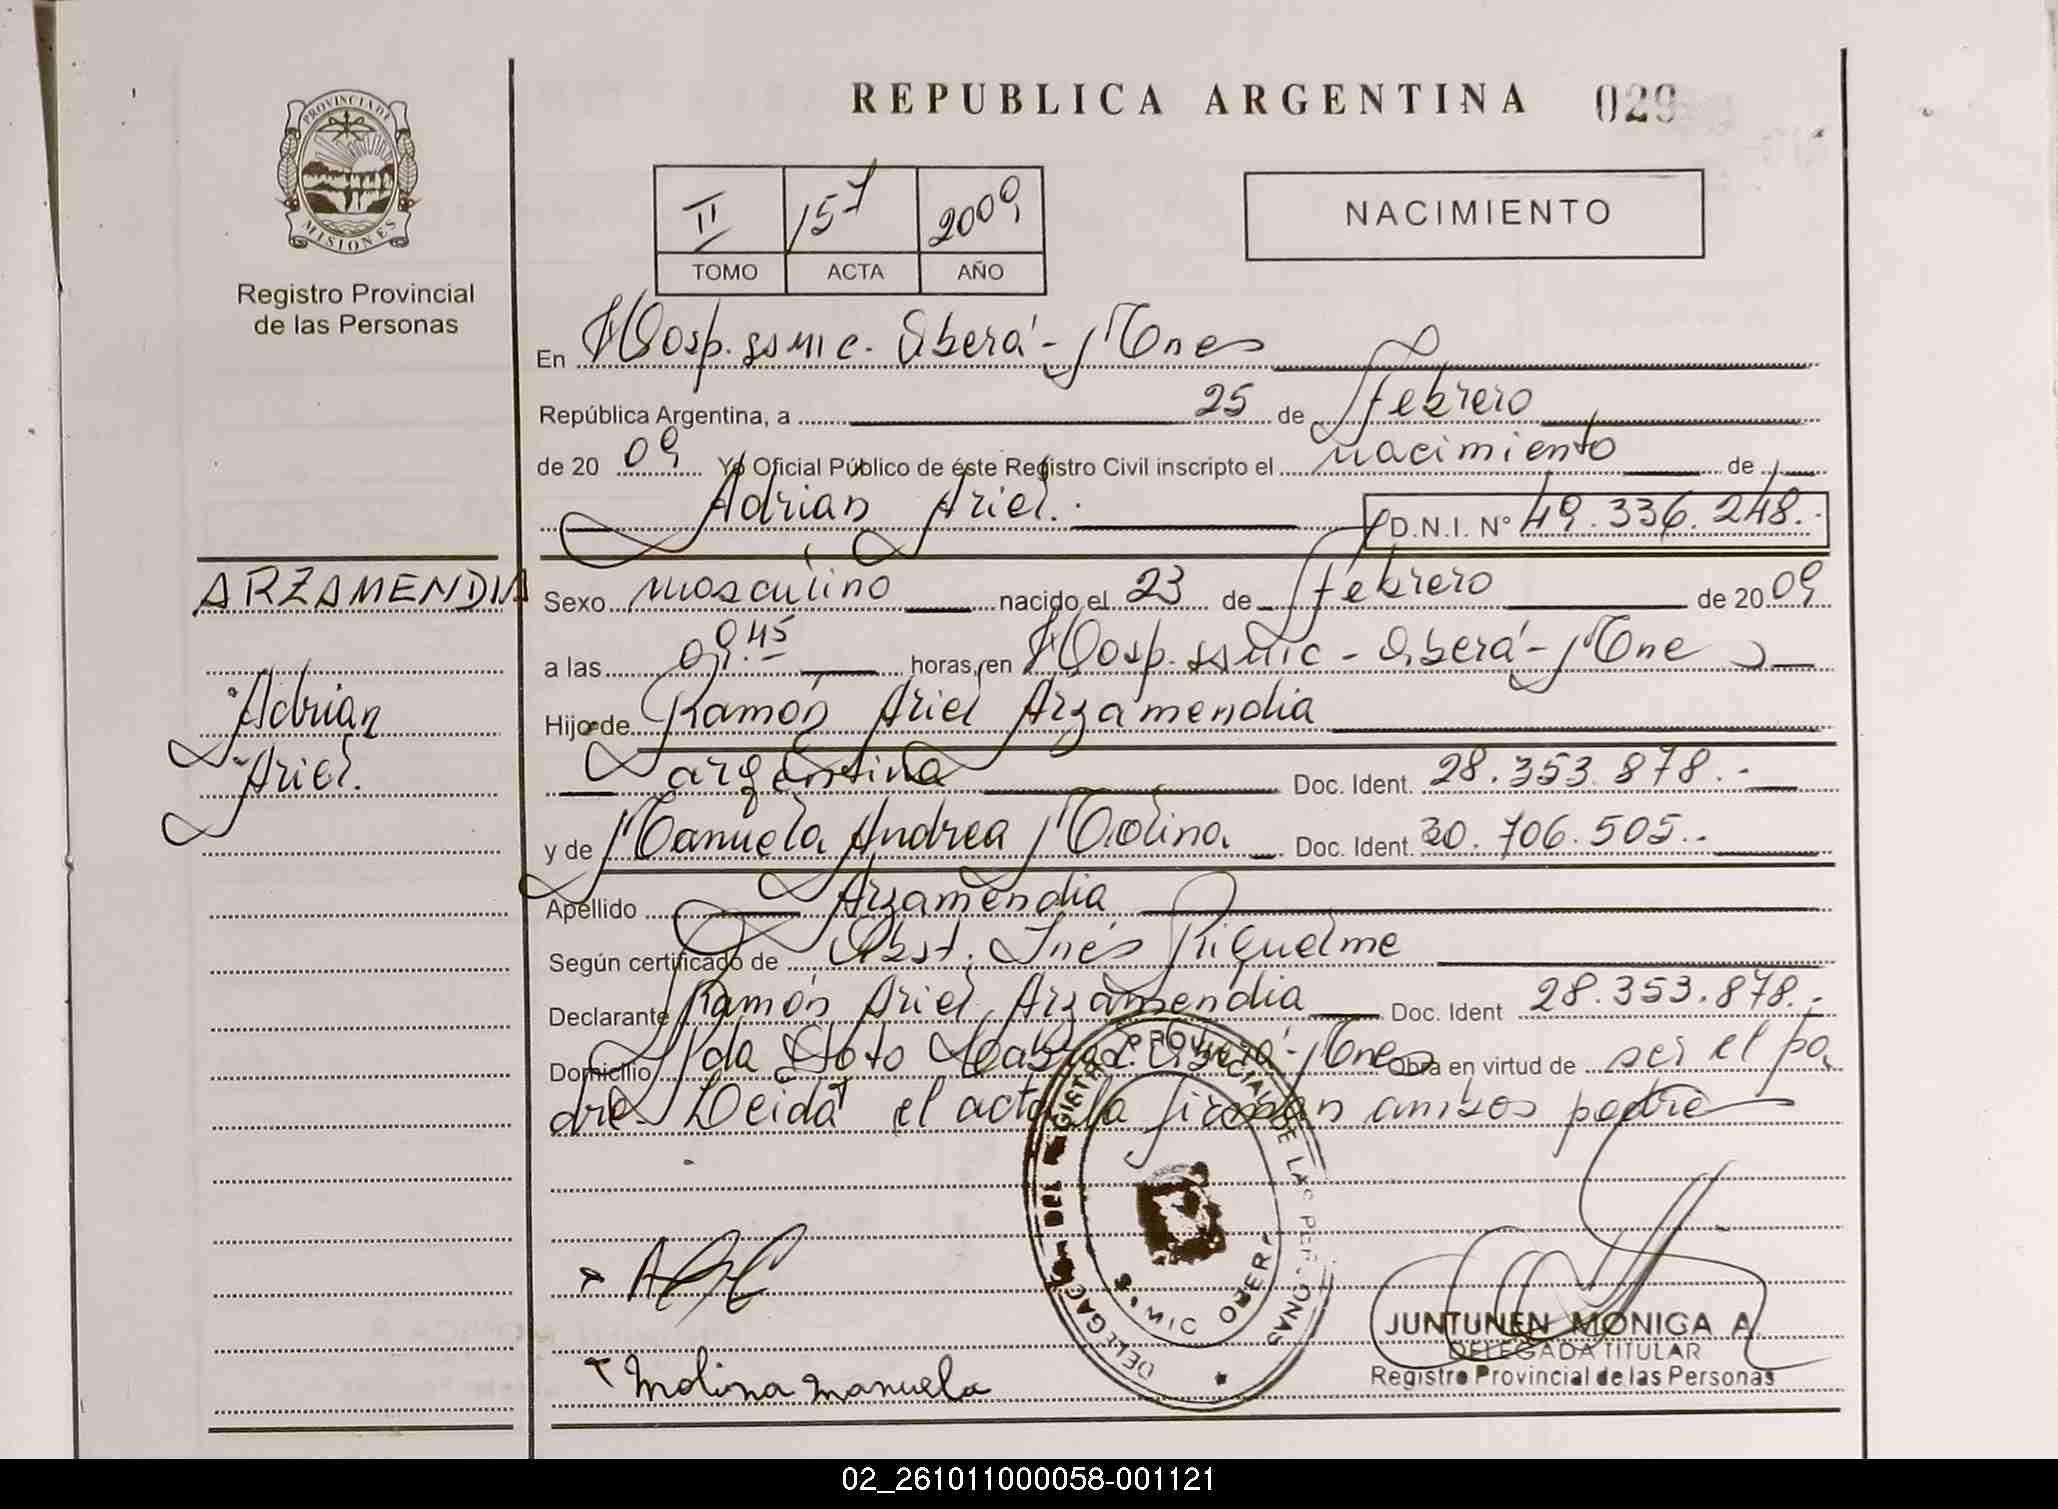 REPUBLICA ARGENTINA 029
PROVINCIA DE
MISIONES
Registro Provincial
de las Personas
II 157 2009
TOMO ACTA AÑO
NACIMIENTO
En Hosp. ssmic. Oberá - Mnes
República Argentina, a 25 de febrero
de 20 09 Yo Oficial Público de éste Registro Civil inscripto el nacimiento de
Adrián Ariel. D.N.I. Nº 49.336.248.-
ARZAMENDIA
Adrián
Ariel.
Sexo masculino nacido el 23 de febrero de 20 09
a las 09.45 horas, en Hosp. ssmic - Oberá - Mnes
Hijo de Ramón Ariel Arzamendia
argentina Doc. Ident. 28.353.878.-
y de Manuela Andrea Molina. Doc. Ident. 30.706.505.-
Apellido Arzamendia
Según certificado de Obst. Inés Riquelme
Declarante Ramón Ariel Arzamendia Doc. Ident 28.353.878.-
Domicilio Oberá - Mnes Obra en virtud de ser el pa
dre. Leída el acta la firman ambos padre
DELEGACION DEL REGISTRO PROVINCIAL DE LAS PERSONAS
MIC OBERA
Molina Manuela
JUNTUNEN MONICA A.
DELEGADA TITULAR
Registro Provincial de las Personas
02_261011000058-001121